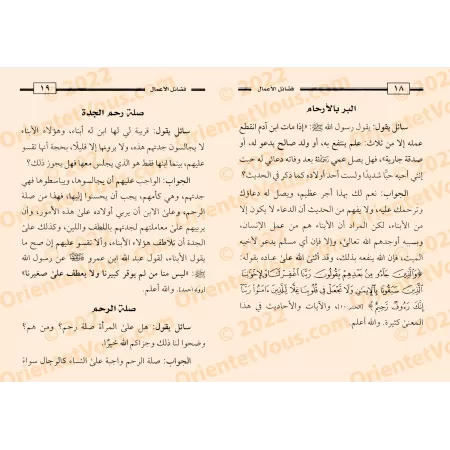 ١٨
فضائل الأعمال
البر بالأرحام
سائل يقول: يقول رسول الله ﷺ: «إذا مات ابن آدم انقطع
عمله إلا من ثلاث: علم ينتفع به، أو ولد صالح يدعو له، أو
صدقة جارية»، فهل يصل عمي بعد وفاته دعائي له حيث
إنني أحبه حبًا شديدًا ولست أحد أولاده كما ذكر في الحديث؟
الجواب: نعم لك بهذا أجر عظيم، ويصل له دعاؤك
وترحمك عليه، ولا يفهم من الحديث أن الدعاء لا يكون إلا
من الأبناء، لكن المراد أن الأبناء هم من عمل الإنسان،
وبسببه أوجدهم الله تعالى، وإلا فإن أي مسلم يدعو لأخيه
المسلم، فإن الله ينفعه بذلك، وقد أثنى الله على عباده بقوله:
﴿وَالَّذِينَ جَاءُو مِنْ بَعْدِهِمْ يَقُولُونَ رَبَّنَا اغْفِرْ لَنَا وَلِإِخْوَانِنَا
الَّذِينَ سَبَقُونَا بِالْإِيمَانِ وَلَا تَجْعَلْ فِي قُلُوبِنَا غِلًّا لِلَّذِينَ آمَنُوا رَبَّنَا
إِنَّكَ رَءُوفٌ رَحِيمٌ﴾ [الحشر: ١٠]، والآيات والأحاديث في هذا
المعنى كثيرة. والله أعلم.
فضائل الأعمال
١٩
صلة رحم الجدة
سائل يقول: قريبة لي لها ابن له أبناء، وهؤلاء الأبناء
لا يجالسون جدتهم هذه، ولا يرونها إلا قليلًا، بحجة أنها تقسو
عليهم، بينما ابنها فقط هو الذي يجلس معها فهل يجوز ذلك؟
الجواب: الواجب عليهم أن يجالسوها، ويباسطوها فهي
جدتهم، وهي كأمهم، يجب أن يحسنوا إليها، فهذا من صلة
الرحم، وعلى الابن أن يربي أولاده على هذه الأمور، وأن
يربيهم على معاملتهم لجدتهم باللطف واللين، وكذلك على
الجدة أن تلاطف هؤلاء الأبناء، وألا تقسو عليهم إن صح ما
يقوله الأبناء، لقول عبد الله ابن عمرو عن رسول الله
ﷺ: «ليس منا من لم يوقر كبيرنا ولا يعطف على صغيرنا»
[رواه أحمد]. والله أعلم.
صلة الرحم
سائل يقول: هل على المرأة صلة رحم؟ ومن هم؟
وضحوا لنا ذلك وجزاكم الله خيرًا.
الجواب: صلة الرحم واجبة على النساء كالرجال سواءً
© 2022
OrientetVous.com